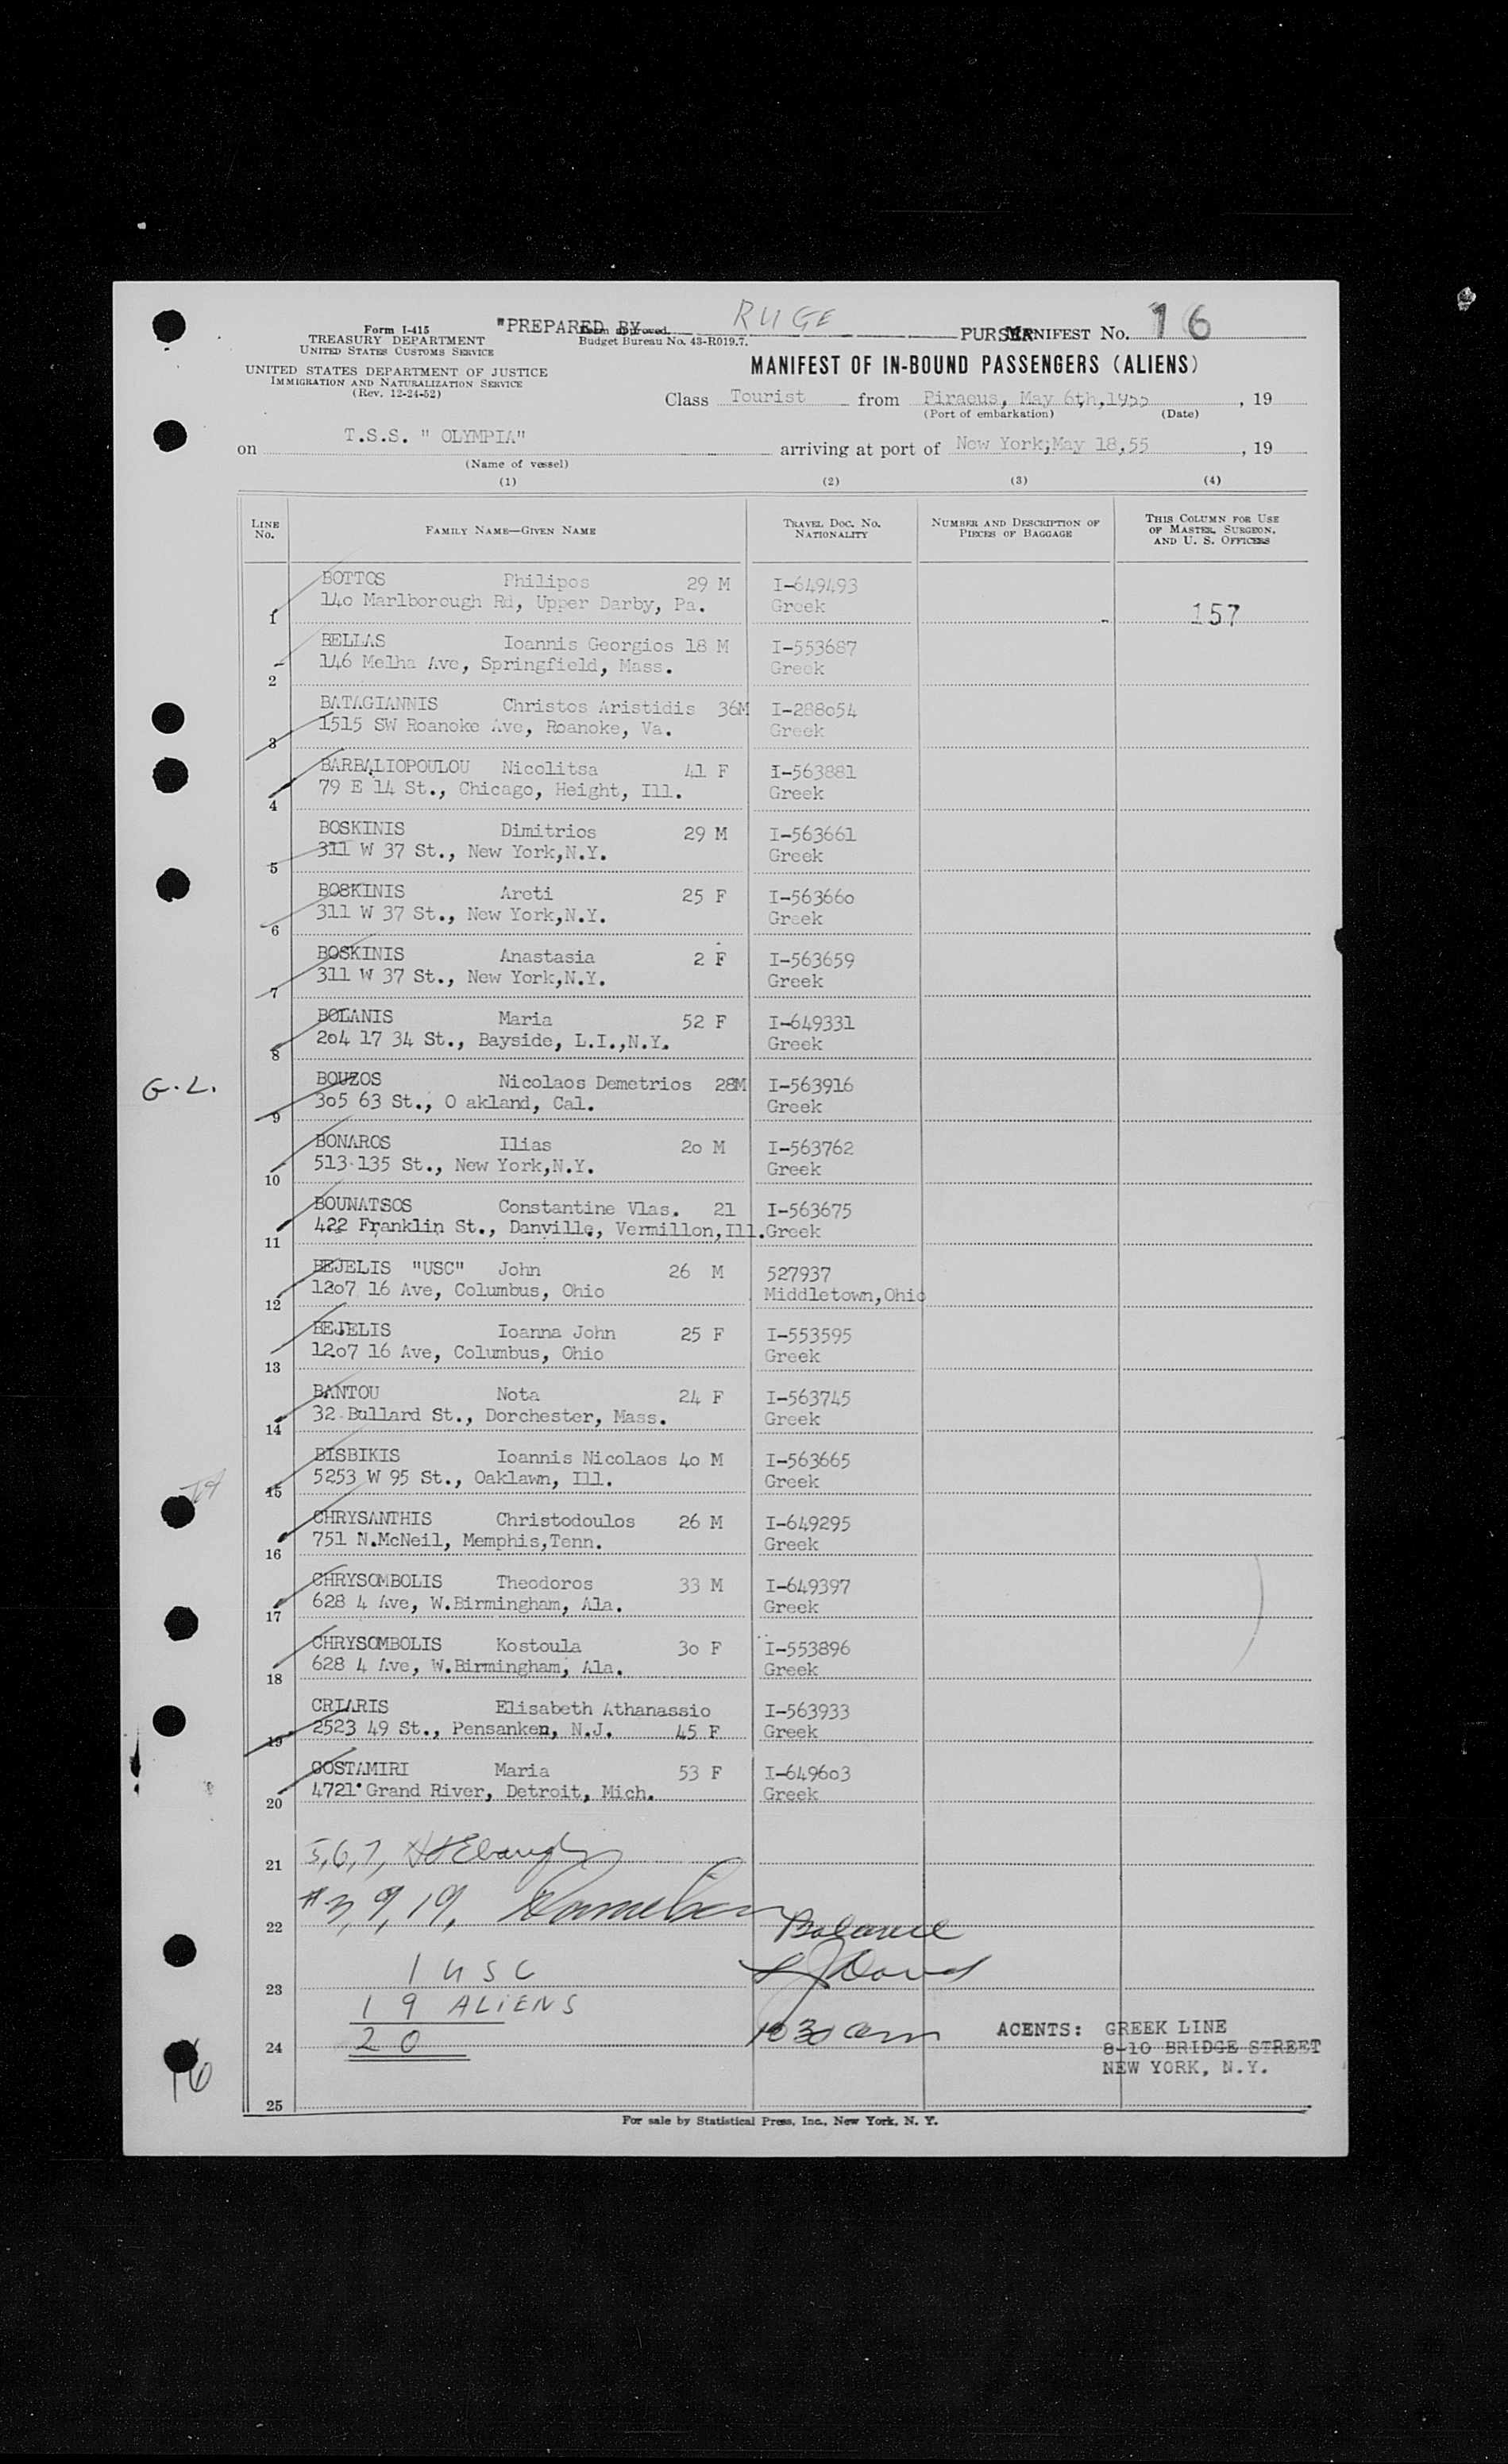 Form I-415
TREASURY DEPARTMENT
UNITED STATES CUSTOMS SERVICE
UNITED STATES DEPARTMENT OF JUSTICE
IMMIGRATION AND NATURALIZATION SERVICE
(Rev. 12-24-52)
"PREPARED BY RUGE PURSER
Form approved.
Budget Bureau No. 43-R019.7.
MANIFEST NO. 16
MANIFEST OF IN-BOUND PASSENGERS (ALIENS)
Class Tourist from Piraeus, May 6th,1955, 19
(Port of embarkation) (Date)
on T.S.S. " OLYMPIA" arriving at port of New York;May 18,55, 19
(Name of vessel)
(1) (2) (3) (4)
LINE NO. FAMILY NAME—GIVEN NAME TRAVEL DOC. NO. NATIONALITY NUMBER AND DESCRIPTION OF PIECES OF BAGGAGE THIS COLUMN FOR USE OF MASTER, SURGEON, AND U. S. OFFICERS
BOTTOS Philipos 29 M I-649493
1 140 Marlborough Rd, Upper Darby, Pa. Greek 157
BELLAS Ioannis Georgios 18 M I-553687
2 146 Melha Ave, Springfield, Mass. Greek
BATAGIANNIS Christos Aristidis 36M I-288054
3 1515 SW Roanoke Ave, Roanoke, Va. Greek
BARBALIOPOULOU Nicolitsa 41 F I-563881
4 79 E 14 St., Chicago, Height, Ill. Greek
BOSKINIS Dimitrios 29 M I-563661
5 311 W 37 St., New York,N.Y. Greek
BOSKINIS Areti 25 F I-563660
6 311 W 37 St., New York,N.Y. Greek
BOSKINIS Anastasia 2 F I-563659
7 311 W 37 St., New York,N.Y. Greek
BOLANIS Maria 52 F I-649331
8 204 17 34 St., Bayside, L.I.,N.Y. Greek
G.L.
BOUZOS Nicolaos Demetrios 28M I-563916
9 305 63 St., O akland, Cal. Greek
BONAROS Ilias 20 M I-563762
10 513 135 St., New York,N.Y. Greek
BOUNATSOS Constantine Vlas. 21 I-563675
11 422 Franklin St., Danville, Vermillon,Ill. Greek
BEJELIS "USC" John 26 M 527937
12 1207 16 Ave, Columbus, Ohio Middletown,Ohio
BEJELIS Ioanna John 25 F I-553595
13 1207 16 Ave, Columbus, Ohio Greek
BANTOU Nota 24 F I-563745
14 32 Bullard St., Dorchester, Mass. Greek
BISBIKIS Ioannis Nicolaos 40 M I-563665
15 5253 W 95 St., Oaklawn, Ill. Greek
CHRYSANTHIS Christodoulos 26 M I-649295
16 751 N.McNeil, Memphis,Tenn. Greek
CHRYSOMBOLIS Theodoros 33 M I-649397
17 628 4 Ave, W.Birmingham, Ala. Greek
CHRYSOMBOLIS Kostoula 30 F I-553896
18 628 4 Ave, W.Birmingham, Ala. Greek
CRIARIS Elisabeth Athanassio I-563933
19 2523 49 St., Pensanken, N.J. 45 F Greek
GOSTAMIRI Maria 53 F I-649603
20 4721 Grand River, Detroit, Mich. Greek
21 5,6,7,
22 #3,9,19, Balance
23 1 USC
19 ALIENS
24 20 10 30 am
AGENTS: GREEK LINE
8-10 BRIDGE STREET
NEW YORK, N.Y.
16
25
For sale by Statistical Press, Inc., New York, N. Y.